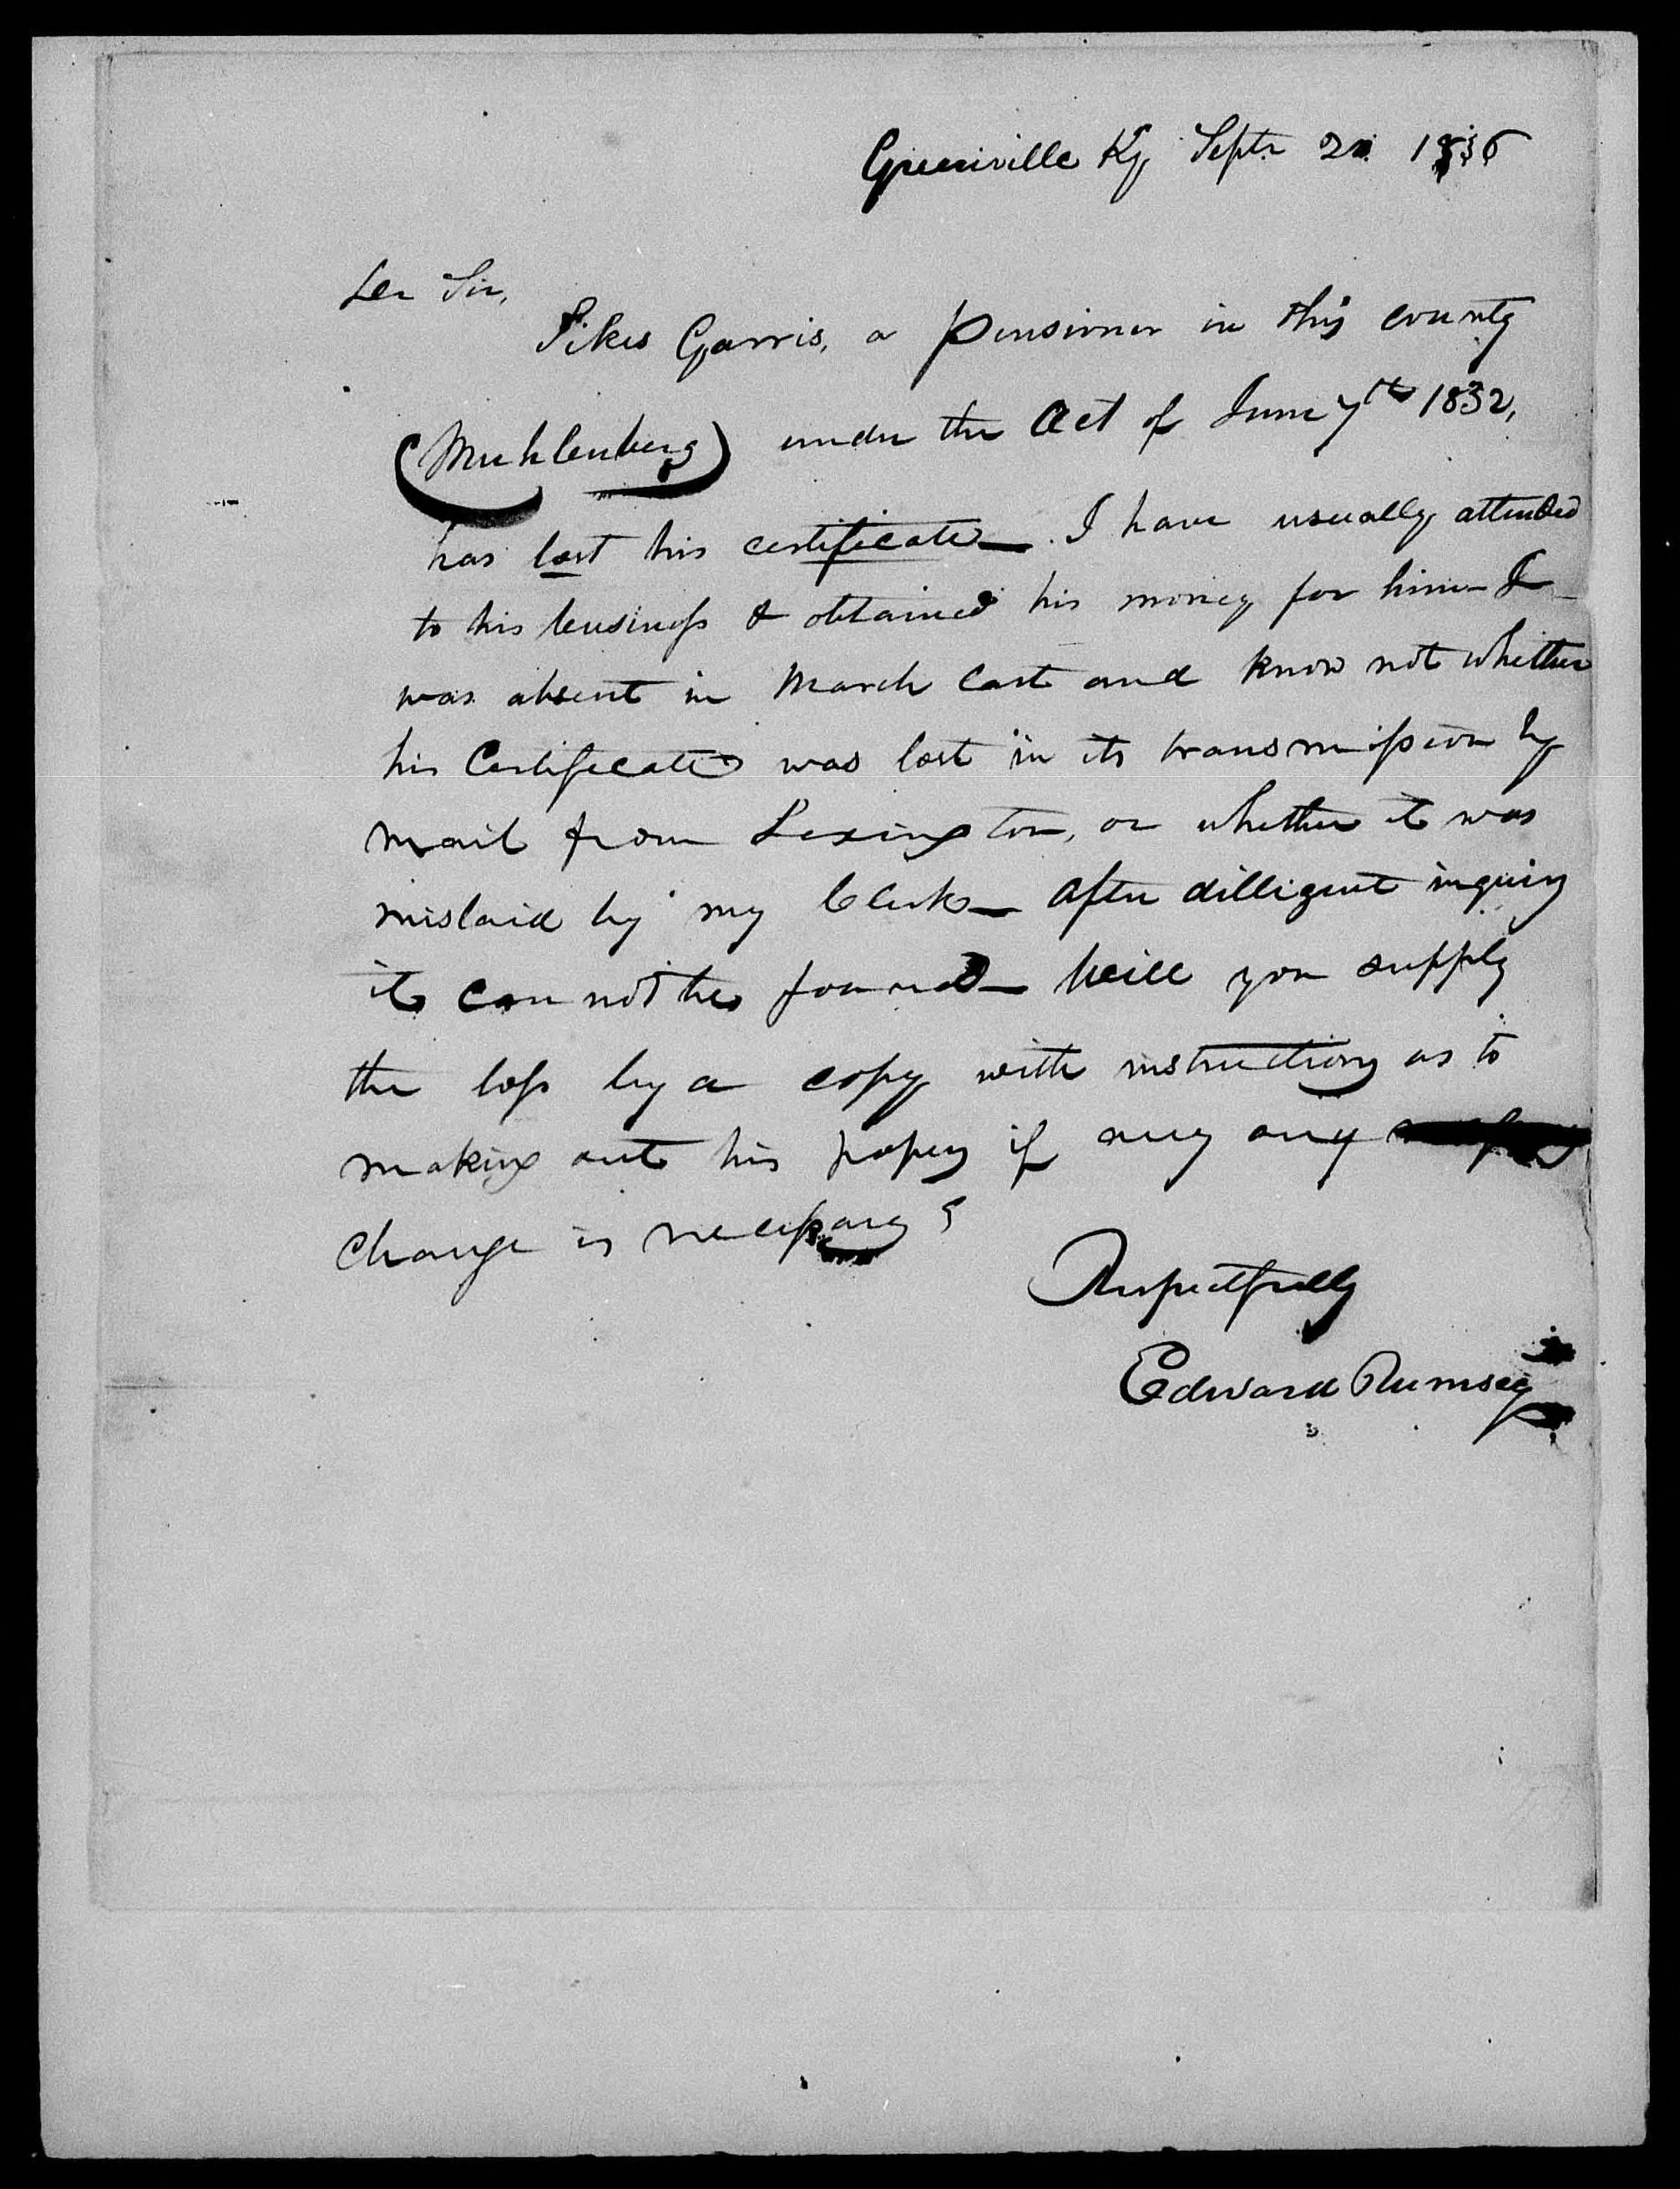 Greenville Ky Septr 20 1836
Der Sir,
Sikes Garris, a pensioner in this county
(Muhlenberg) under the Act of June 7th 1832,
has lost his certificate — I have usually attended
to his business & obtained his money for him — I
was absent in March last and know not whether
his Certificate was lost in its transmission by
mail from Lexington, or whether it was
mislaid by my Clerk — After dilligent inquiry
it can not be found — Will you supply
the loss by a copy with instructions as to
making out his papers if any any
change is necessary?
Respectfully
Edward Rumsey